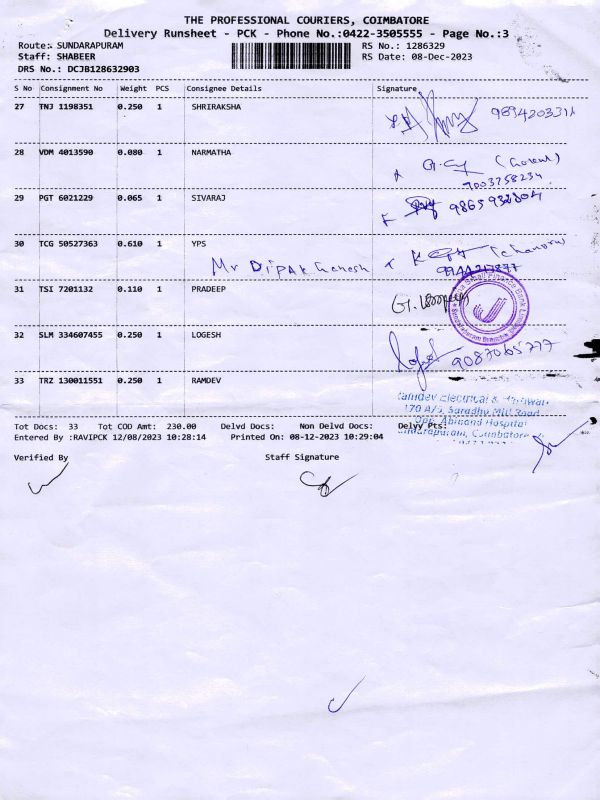 THE PROFESSIONAL COURIERS, COIMBATORE
Delivery Runsheet - PCK - Phone No.:0422-3505555 - Page No.:3
Route: SUNDARAPURAM RS No.: 1286329
Staff: SHABEER RS Date: 08-Dec-2023
DRS No.: DCJB128632903
S No Consignment No Weight PCS Consignee Details Signature
27 TNJ 1198351 0.250 1 SHRIRAKSHA
28 VDM 4013590 0.080 1 NARMATHA
7003758234
29 PGT 6021229 0.065 1 SIVARAJ
30 TCG 50527363 0.610 1 YPS
Mr Dipak Ganesh
31 TSI 7201132 0.110 1 PRADEEP
Small Finance Bank
32 SLM 334607455 0.250 1 LOGESH
9087065777
33 TRZ 130011551 0.250 1 RAMDEV
Electrical &
170 A/5, Mill Road
Hospital
Coimbatore
Tot Docs: 33 Tot COD Amt: 230.00 Delvd Docs: Non Delvd Docs: Delvy Pts:
Entered By :RAVIPCK 12/08/2023 10:28:14 Printed On: 08-12-2023 10:29:04
Verified By Staff Signature